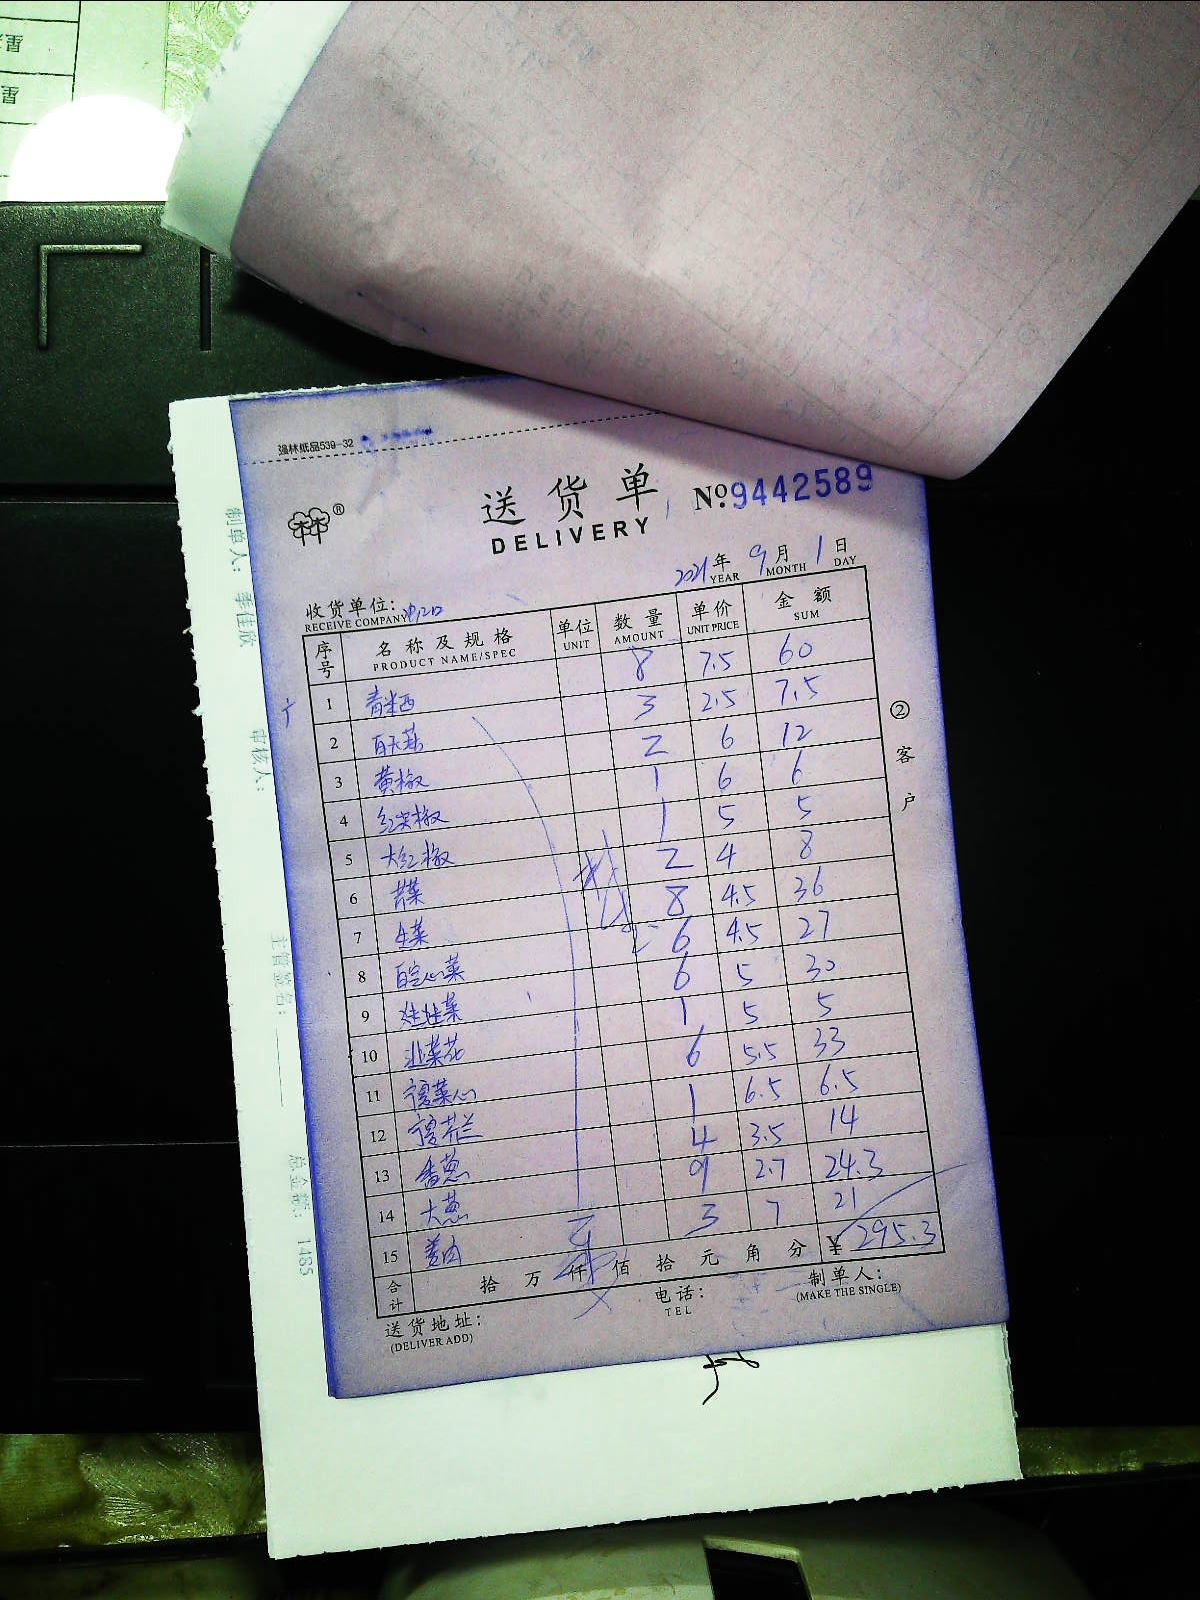 强林纸品539-32
送货单
DELIVERY
№9442589
2021年 9月 1日
YEAR MONTH DAY
收货单位:
RECEIVE COMPANY
序号 名称及规格 单位 数量 单价 金额
PRODUCT NAME/SPEC UNIT AMOUNT UNIT PRICE SUM
8 7.5 60
1 3 2.5 7.5
2 2 6 12
3 黄椒 1 6 6
4 红尖椒 1 5 5
5 大红椒 2 4 8
6 8 4.5 36
7 生菜 6 4.5 27
8 6 5 30
9 娃娃菜 1 5 5
10 韭菜花 6 5.5 33
11 1 6.5 6.5
12 4 3.5 14
13 香葱 9 2.7 24.3
14 大葱 3 7 21
15 姜肉
合计 拾 万 仟 佰 拾 元 角 分 ¥ 295.3
送货地址:
(DELIVER ADD)
电话:
TEL
制单人:
(MAKE THE SINGLE)
②客户
制单人: 季佳欣
审核人:
主管签名:
总金额: 1485